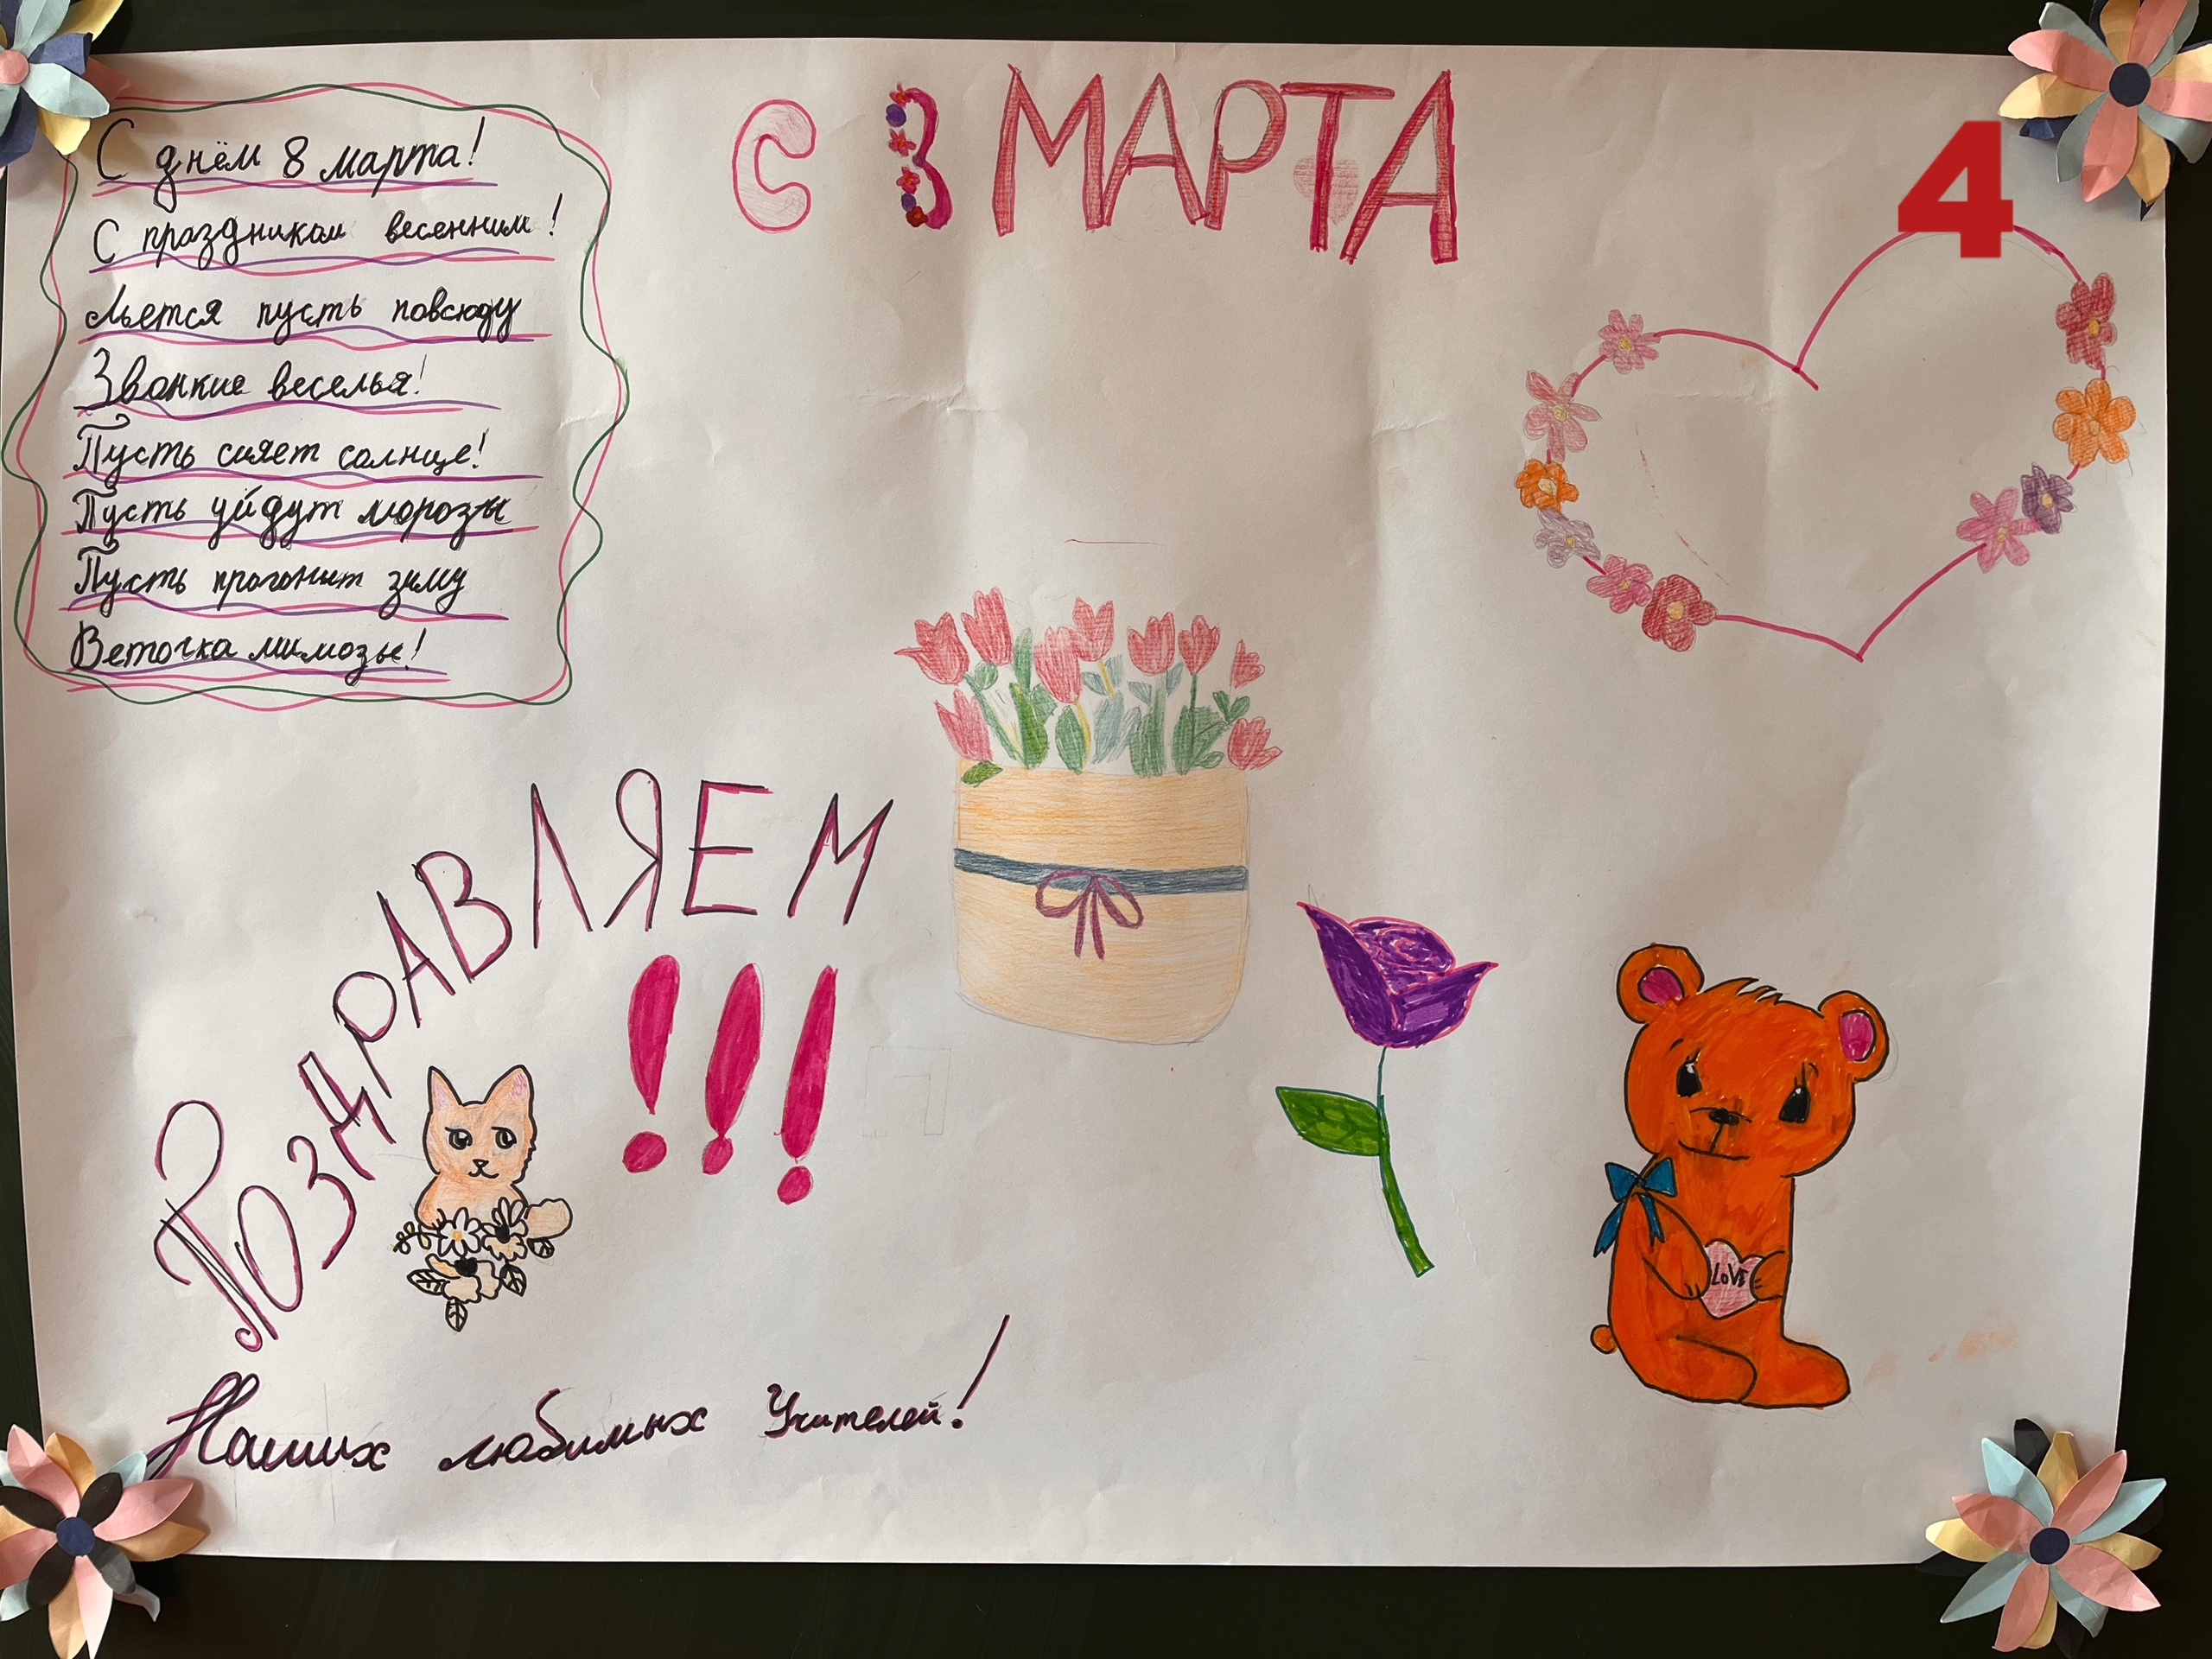 С 8 МАРТА
4
С днём 8 марта!
С праздником весенним!
Льется пусть повсюду
Звонкие веселья!
Пусть сияет солнце!
Пусть уйдут морозы
Пусть прогонит зиму
Веточка мимозы!
ПОЗДРАВЛЯЕМ
!!!
LOVE
Наших любимых Учителей!